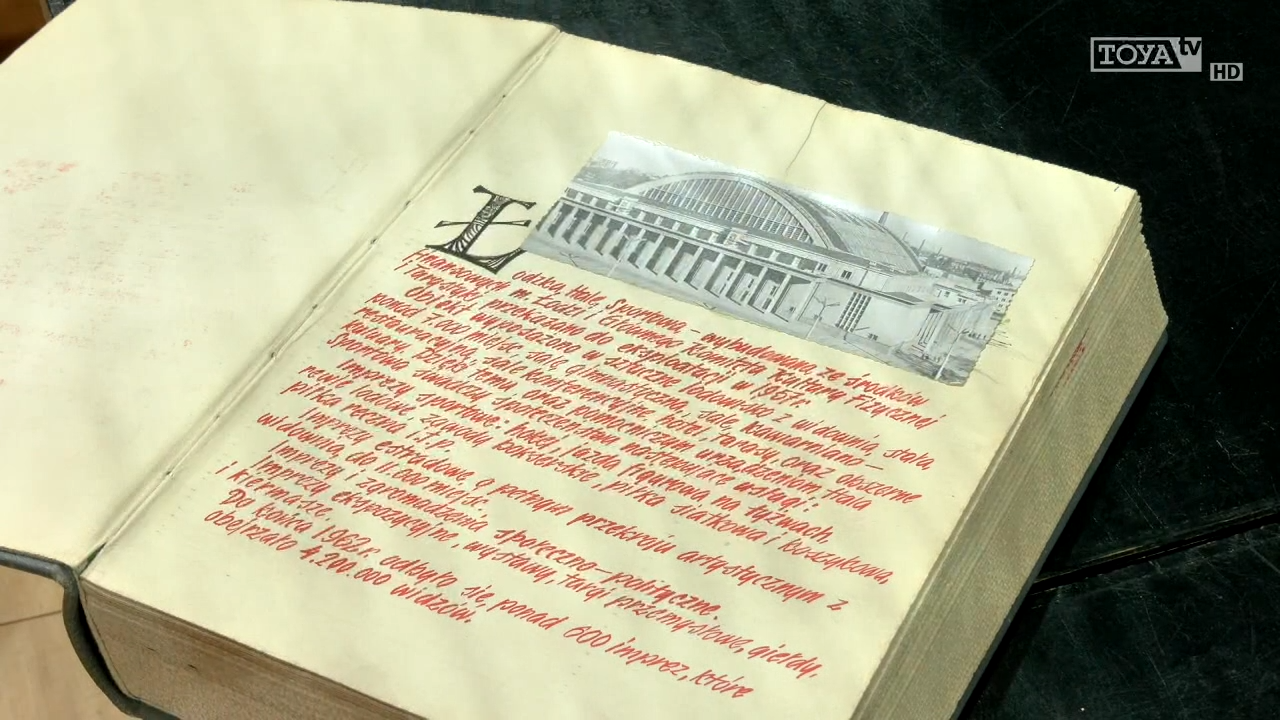 TOYA tv
HD
Łodzką Halę Sportową, – wybudowaną ze środków
finansowych m. Łodzi i Głównego Komitetu Kultury Fizycznej i
Turystyki, przekazano do eksploatacji w 1957r.
Obiekt wyposażono w sztuczne lodowisko z widownią, stałą
ponad 7.000 miejsc, salę gimnastyczną, salę
restauracyjną, sale konferencyjne, hotel, oraz obszerne
kuluary. Dzięki temu oraz pomocniczym urządzeniom, Hala
Sportowa świadczy społeczeństwu następujące usługi:
Imprezy sportowe: hokej i jazda figurowa na łyżwach,
rewie lodowe, bokserskie, piłka siatkowa i koszykowa,
piłka ręczna i.t.p.
Imprezy estradowe o pełnym przekroju artystycznym z
widownią, do 11.000 miejsc.
Imprezy i zgromadzenia społeczno–polityczne.
Imprezy ekspozycyjne, wystawy, targi przemysłowe, giełdy,
i kiermasze.
Do końca 1962r. odbyło się, ponad 600 imprez, które
obejrzało 4.200.000 widzów.